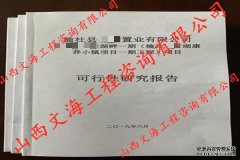 榆社县 置业有限公司
湖畔一期（榆社 湖康
养小镇项目一期工程）项目
可行性研究报告
二〇一九年六月
山西文海工程咨询有限公司
山西文海工程咨询有限公司